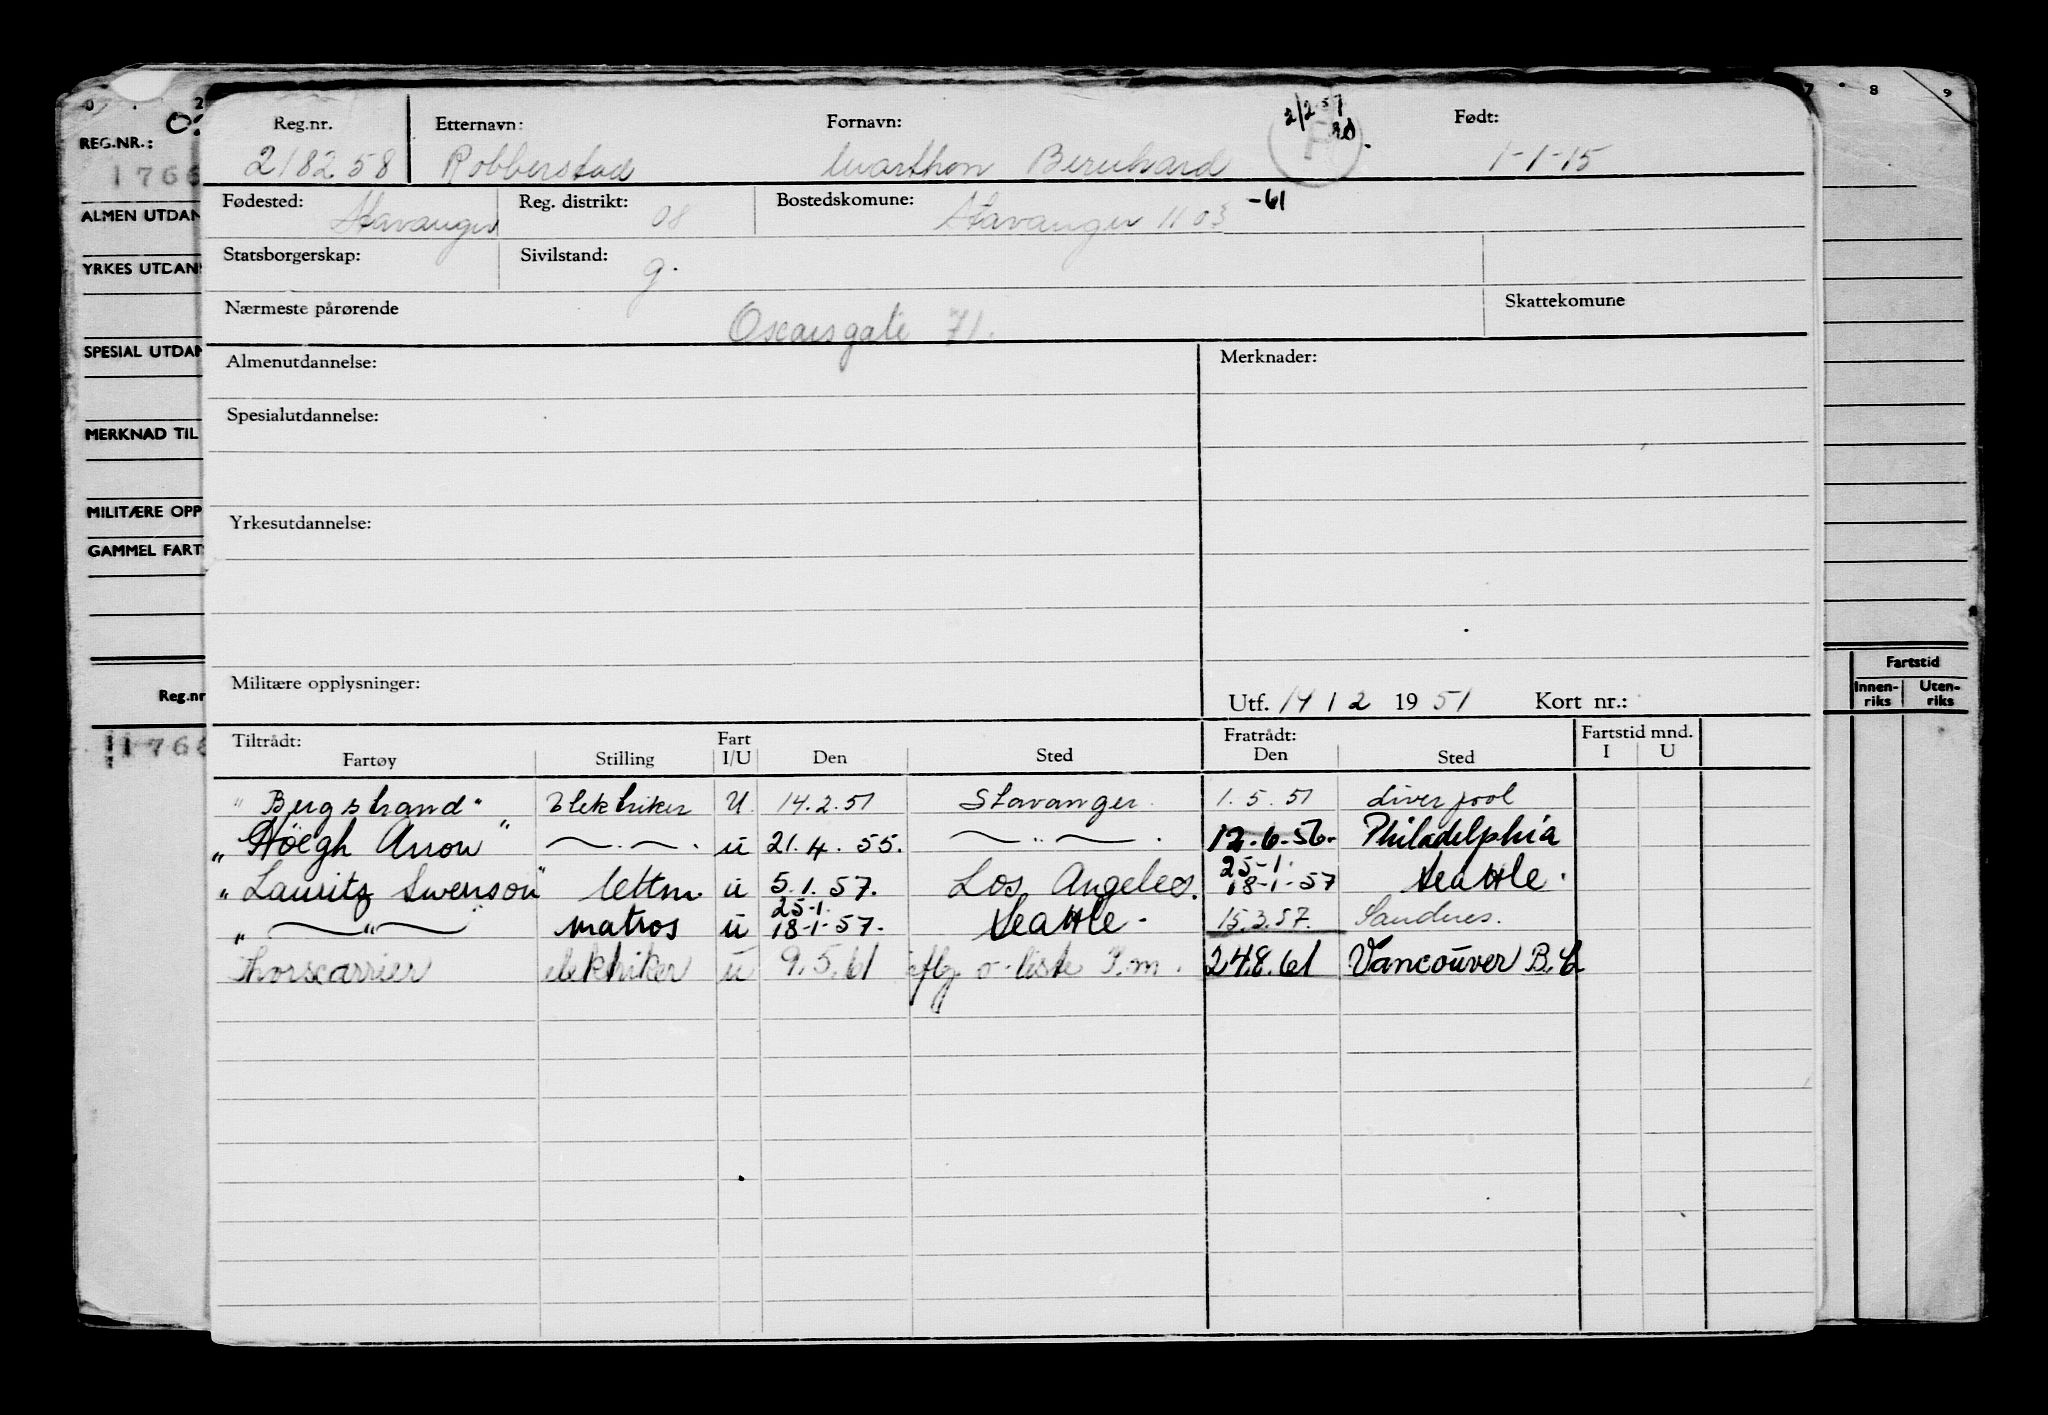 2/2 57
Reg.nr. Etternavn: Fornavn: Født:
218258 Robberstad Marthon Bernhard 1-1-15
Fødested: Stavanger Reg. distrikt: 08 Bostedskomune: Stavanger 1103 -61
Statsborgerskap: Sivilstand: g.
Nærmeste pårørende Oscarsgate 71. Skattekomune
Almenutdannelse: Merknader:
Spesialutdannelse:
Yrkesutdannelse:
Militære opplysninger: Utf. 14 / 2 19 51 Kort nr.:
Tiltrådt: Fart Fratrådt: Fartstid mnd.
Fartøy Stilling I/U Den Sted Den Sted I U
"Bergstrand" Elektriker U. 14.2.51 Stavanger. 1.5.51 Liverpool
"Höegh Arrow" —..—. u 21.4.55. —..—. 12.6.56. Philadelphia
25-1.
"Lauritz Swenson" lettm u 5.1.57. Los Angeles. 18-1-57 Seattle.
25-1.
" —"— matros u 18-1-57. Seattle. 15.3.57. Sandnes.
Thorscarrier elektriker u 9.5.61 iflg o-liste 24.8.61 Vancouver B.C
REG.NR.:
1766
ALMEN UTDAN
YRKES UTDANS
SPESIAL UTDAN
MERKNAD TIL
MILITÆRE OPP
GAMMEL FARTS
Reg.nr
1766
7 8 9
Fartstid
Innen-riks Uten-riks